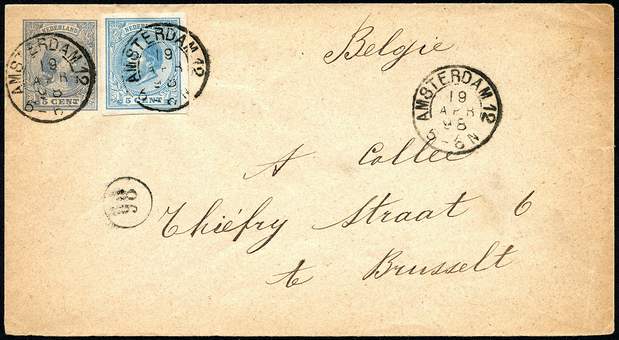 NEDERLAND
5 CENT
AMSTERDAM 12
19
APR
98
5-6N
5 CENT
AMSTERDAM 12
19
5-6N
Belgie
AMSTERDAM 12
19
APR
98
5-6N
A Collee
Thiéfry Straat 6
te Brusselt
98